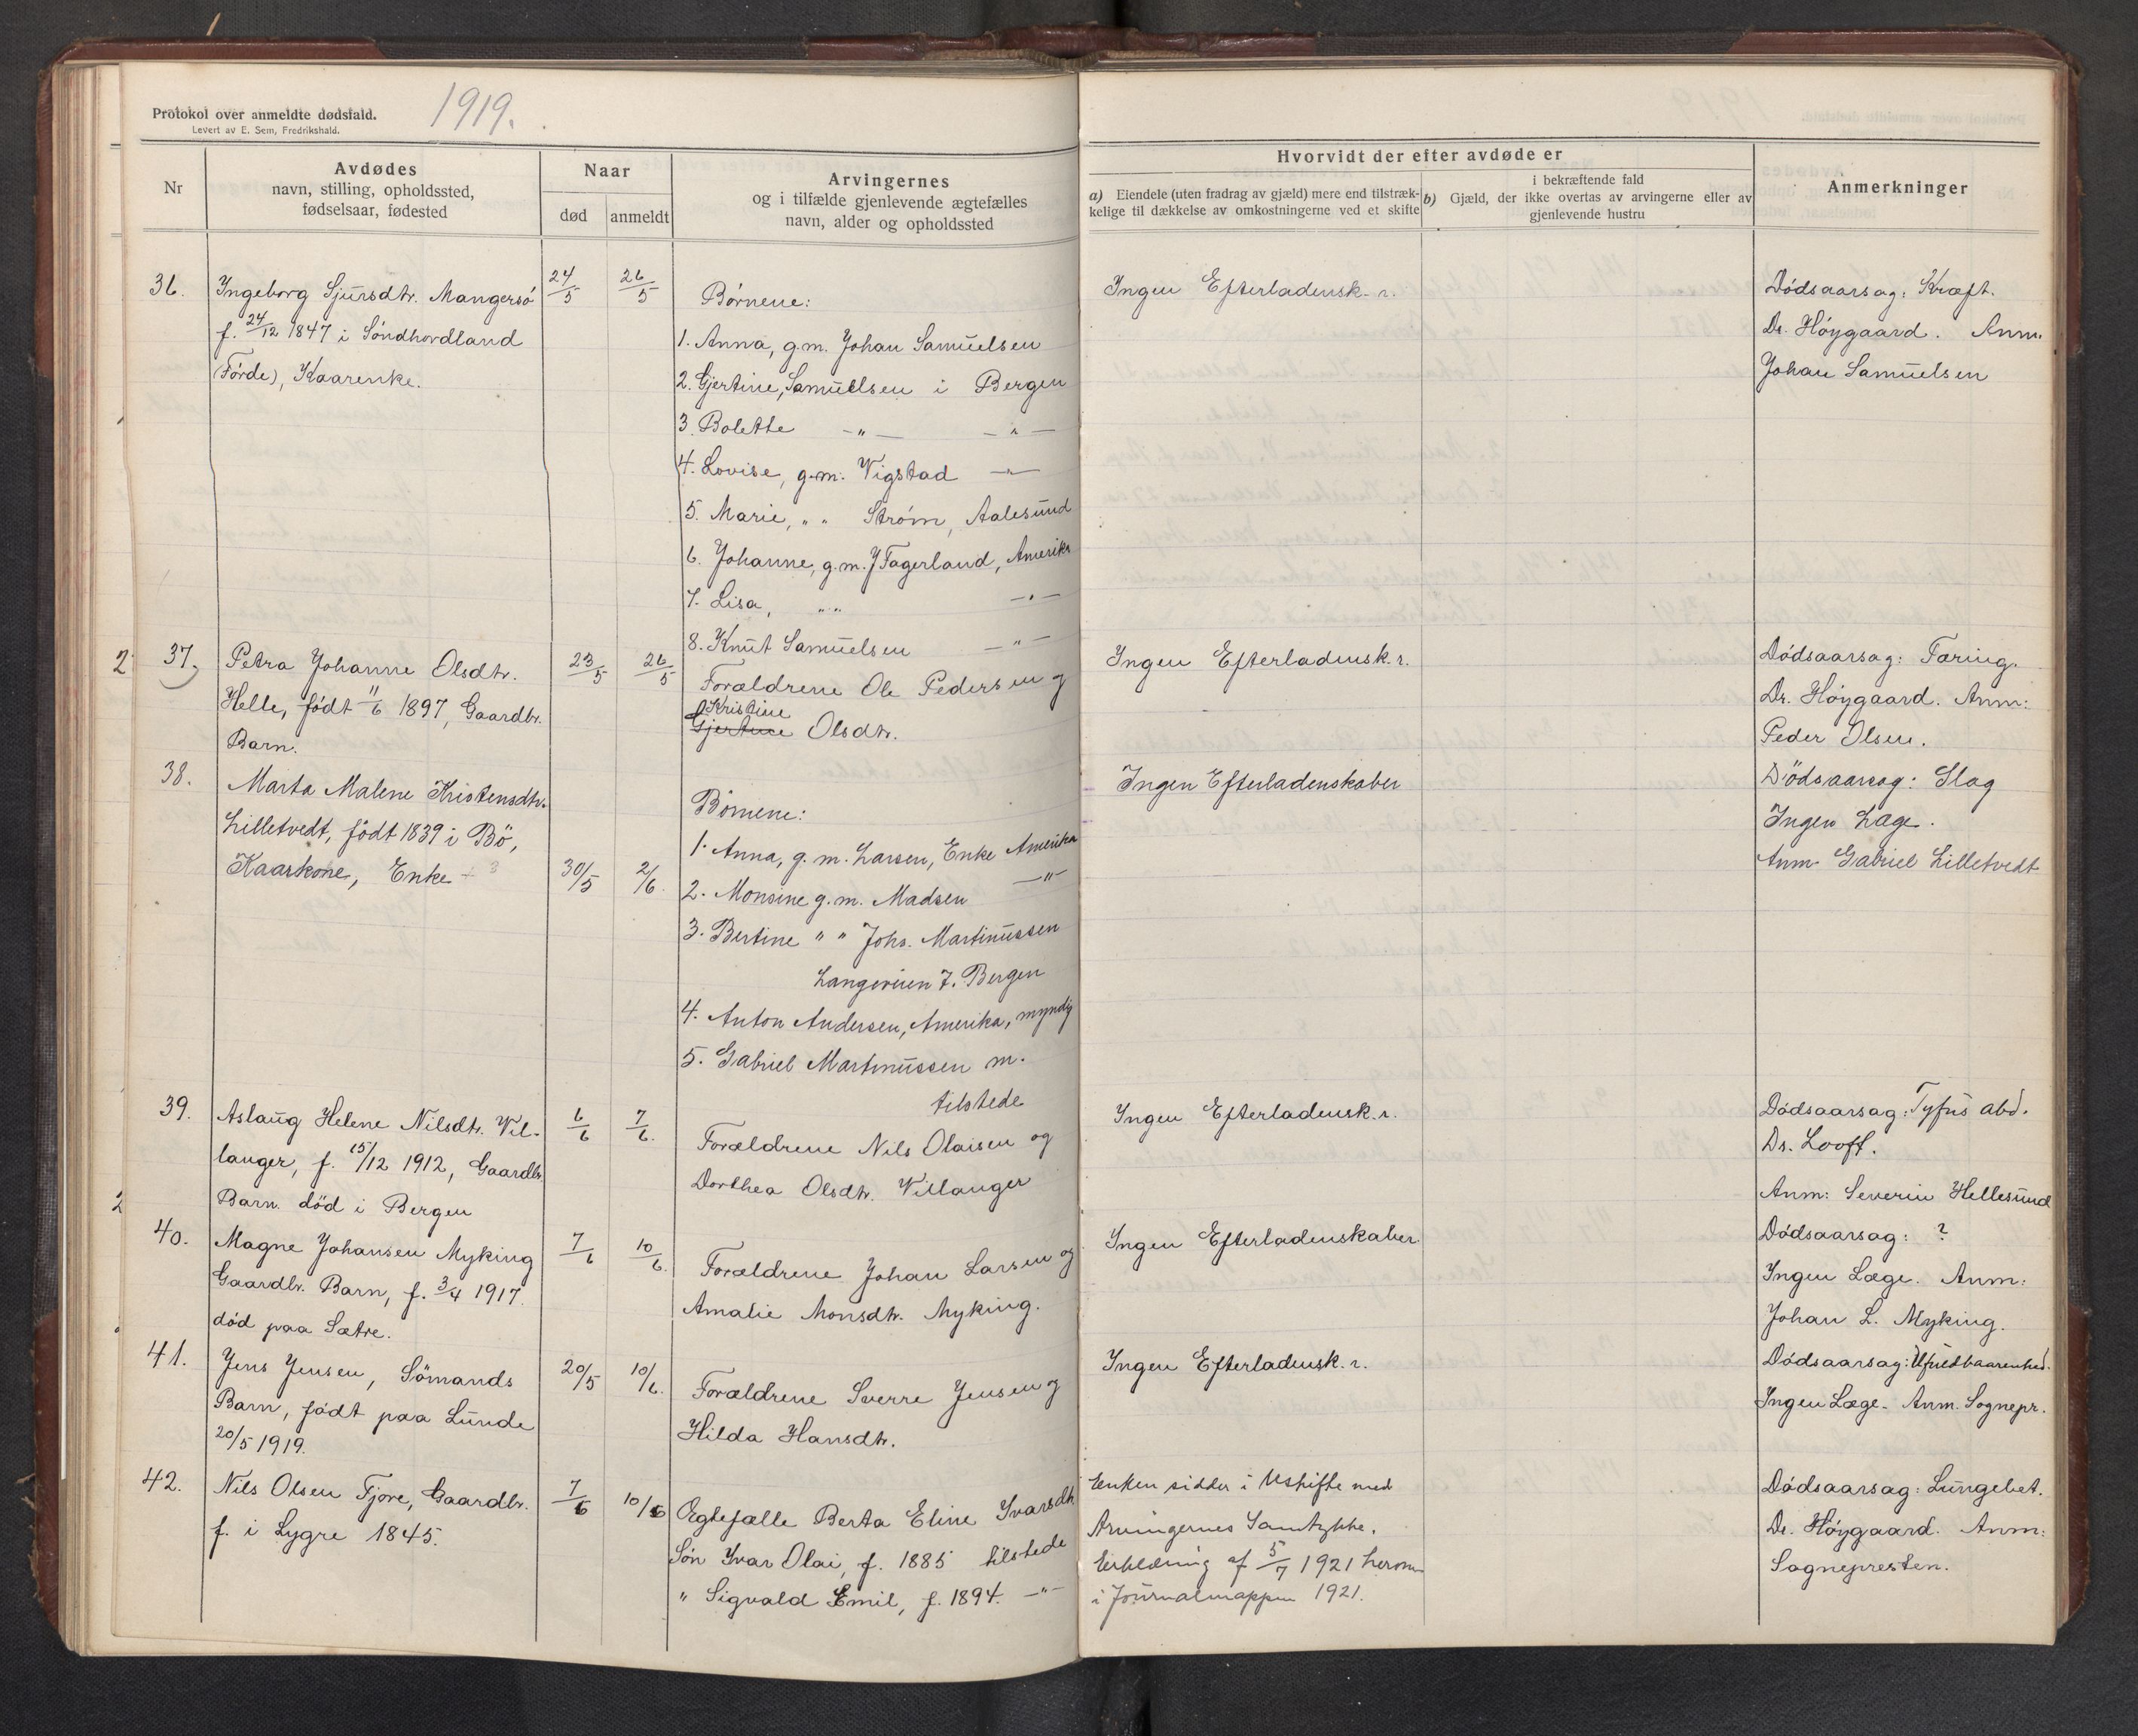 1919.
Protokol over anmeldte dødsfald.
Levert av E. Sem, Fredrikshald.
Nr
Avdødes
navn, stilling, opholdssted,
fødselsaar, fødested
Naar
død
anmeldt
Arvingernes
og i tilfælde gjenlevende ægtefælles
navn, alder og opholdssted
Hvorvidt der efter avdøde er
a) Eiendele (uten fradrag av gjæld) mere end tilstræk-
kelige til dækkelse av omkostningerne ved et skifte
i bekræftende fald
b) Gjæld, der ikke overtas av arvingerne eller av
gjenlevende hustru
Anmerkninger
36.
Ingeborg Sjursdtr. Mangersö
f. 24/12 1847 i Söndhordland
(Förde), Kaarenke.
24/5
26/5
Börnene:
1. Anna, g.m. Johan Samuelsen
2. Gjertine, Samuelsen i Bergen
3. Bolette -"- -"-
4. Lovise, g.m. Vigstad -"-
5. Marie, " " Ström, Aalesund
6. Johanne, g.m. J Fagerland, Amerika
7. Lisa, " " -"-
8. Knut Samuelsen -"-
Ingen Efterladensk.r.
Dödsaarsag: Kræft.
Dr. Höygaard. Anm.
Johan Samuelsen
2
37.
Petra Johanne Olsdtr.
Helle, født 11/6 1897, Gaardbr.
Barn.
23/5
26/5
Forældrene Ole Pedersen og
Kristine
Gjertine Olsdtr.
Ingen Efterladensk.r.
Dödsaarsag: Tæring.
Dr. Höygaard. Anm:
Peder Olsen.
38.
Marta Malene Kristensdtr.
Lilletvedt, födt 1839 i Bö,
Kaarkone, Enke
30/5
2/6.
Börnene:
1. Anna, g.m. Larsen, Enke Amerika
2. Monsine g.m. Madsen -"-
3. Bertine " " Johs. Martinussen
Langeveien 7. Bergen
4. Anton Andersen, Amerika, myndig
5. Gabriel Martinussen m.
tilstede
Ingen Efterladenskaber
Dödsaarsag: Slag
Ingen Læge.
Anm. Gabriel Lilletvedt
39.
Aslaug Helene Nilsdtr. Vil-
langer, f. 15/12 1912, Gaardbr.
Barn. död i Bergen
6/6
7/6.
Forældrene Nils Olaisen og
Dorthea Olsdtr. Villanger
Ingen Efterladensk.r.
Dödsaarsag: Tyfus abd.
Dr. Looft.
Anm: Severin Hellesund
2
40.
Magne Johansen Myking
Gaardbr. Barn, f. 3/4 1917.
död paa Sætre.
7/6
10/6.
Forældrene Johan Larsen og
Amalie Monsdtr. Myking.
Ingen Efterladenskaber.
Dödsaarsag: ?
Ingen Læge. Anm:
Johan L. Myking.
41.
Jens Jensen, Sömands
Barn, födt paa Lunde
20/5 1919.
20/5
10/6.
Forældrene Sverre Jensen og
Hilda Hansdtr.
Ingen Efterladensk.r.
Dödsaarsag: Ufuldbaarenhed.
Ingen Læge. Anm. Sognepr.
42.
Nils Olsen Fjore, Gaardbr.
f. i Lygre 1845.
7/6
10/6
Ægtefælle Berta Eline Ivarsdtr.
Søn Ivar Olai, f. 1885 tilstede
" Sigvald Emil, f. 1894. -"-
Enken sidder i Uskifte med
Arvingernes Samtykke.
Erklæring af 5/7 1921 herom
i Journalmappen 1921.
Dödsaarsag: Lungebet.
Dr. Höygaard. Anm:
Sognepresten.